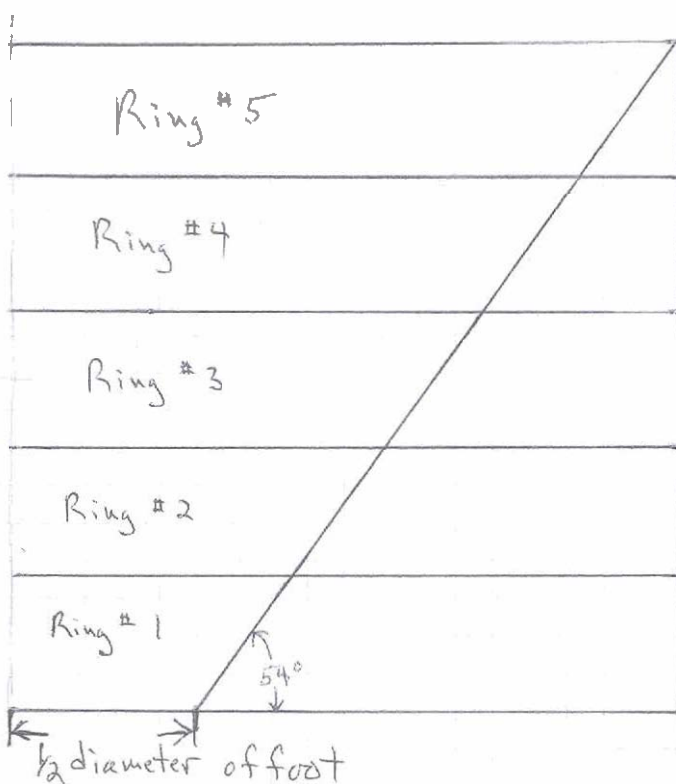 Ring #5
Ring #4
Ring #3
Ring #2
Ring #1
54°
1/2 diameter of foot